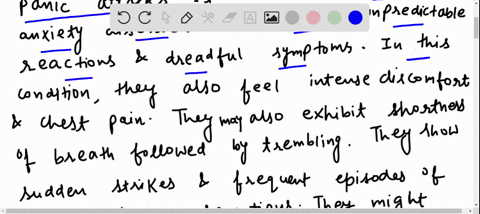 panic attacks
anxiety unpredictable
reactions & dreadful symptoms. In this
condition, they also feel intense discomfort
& chest pain. They may also exhibit shortness
of breath followed by trembling. They show
sudden strikes & frequent episodes of
They might